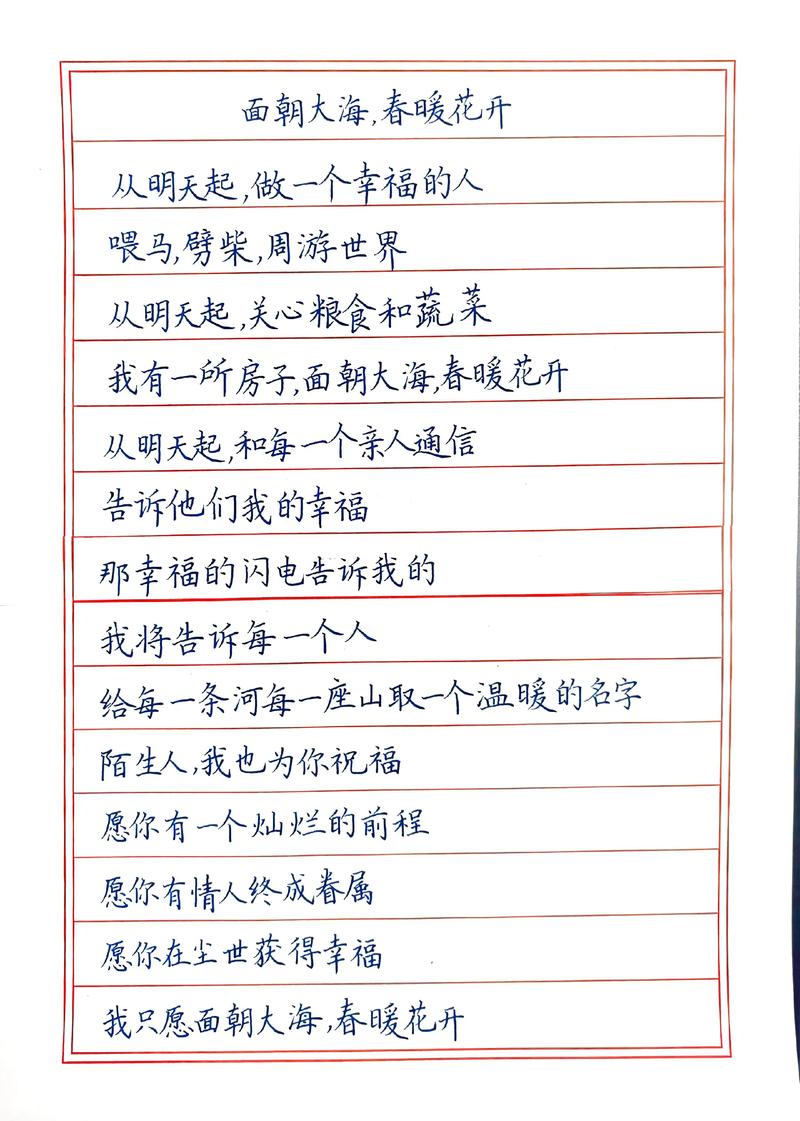 面朝大海,春暖花开
从明天起,做一个幸福的人
喂马,劈柴,周游世界
从明天起,关心粮食和蔬菜
我有一所房子,面朝大海,春暖花开
从明天起,和每一个亲人通信
告诉他们我的幸福
那幸福的闪电告诉我的
我将告诉每一个人
给每一条河每一座山取一个温暖的名字
陌生人,我也为你祝福
愿你有一个灿烂的前程
愿你有情人终成眷属
愿你在尘世获得幸福
我只愿面朝大海,春暖花开